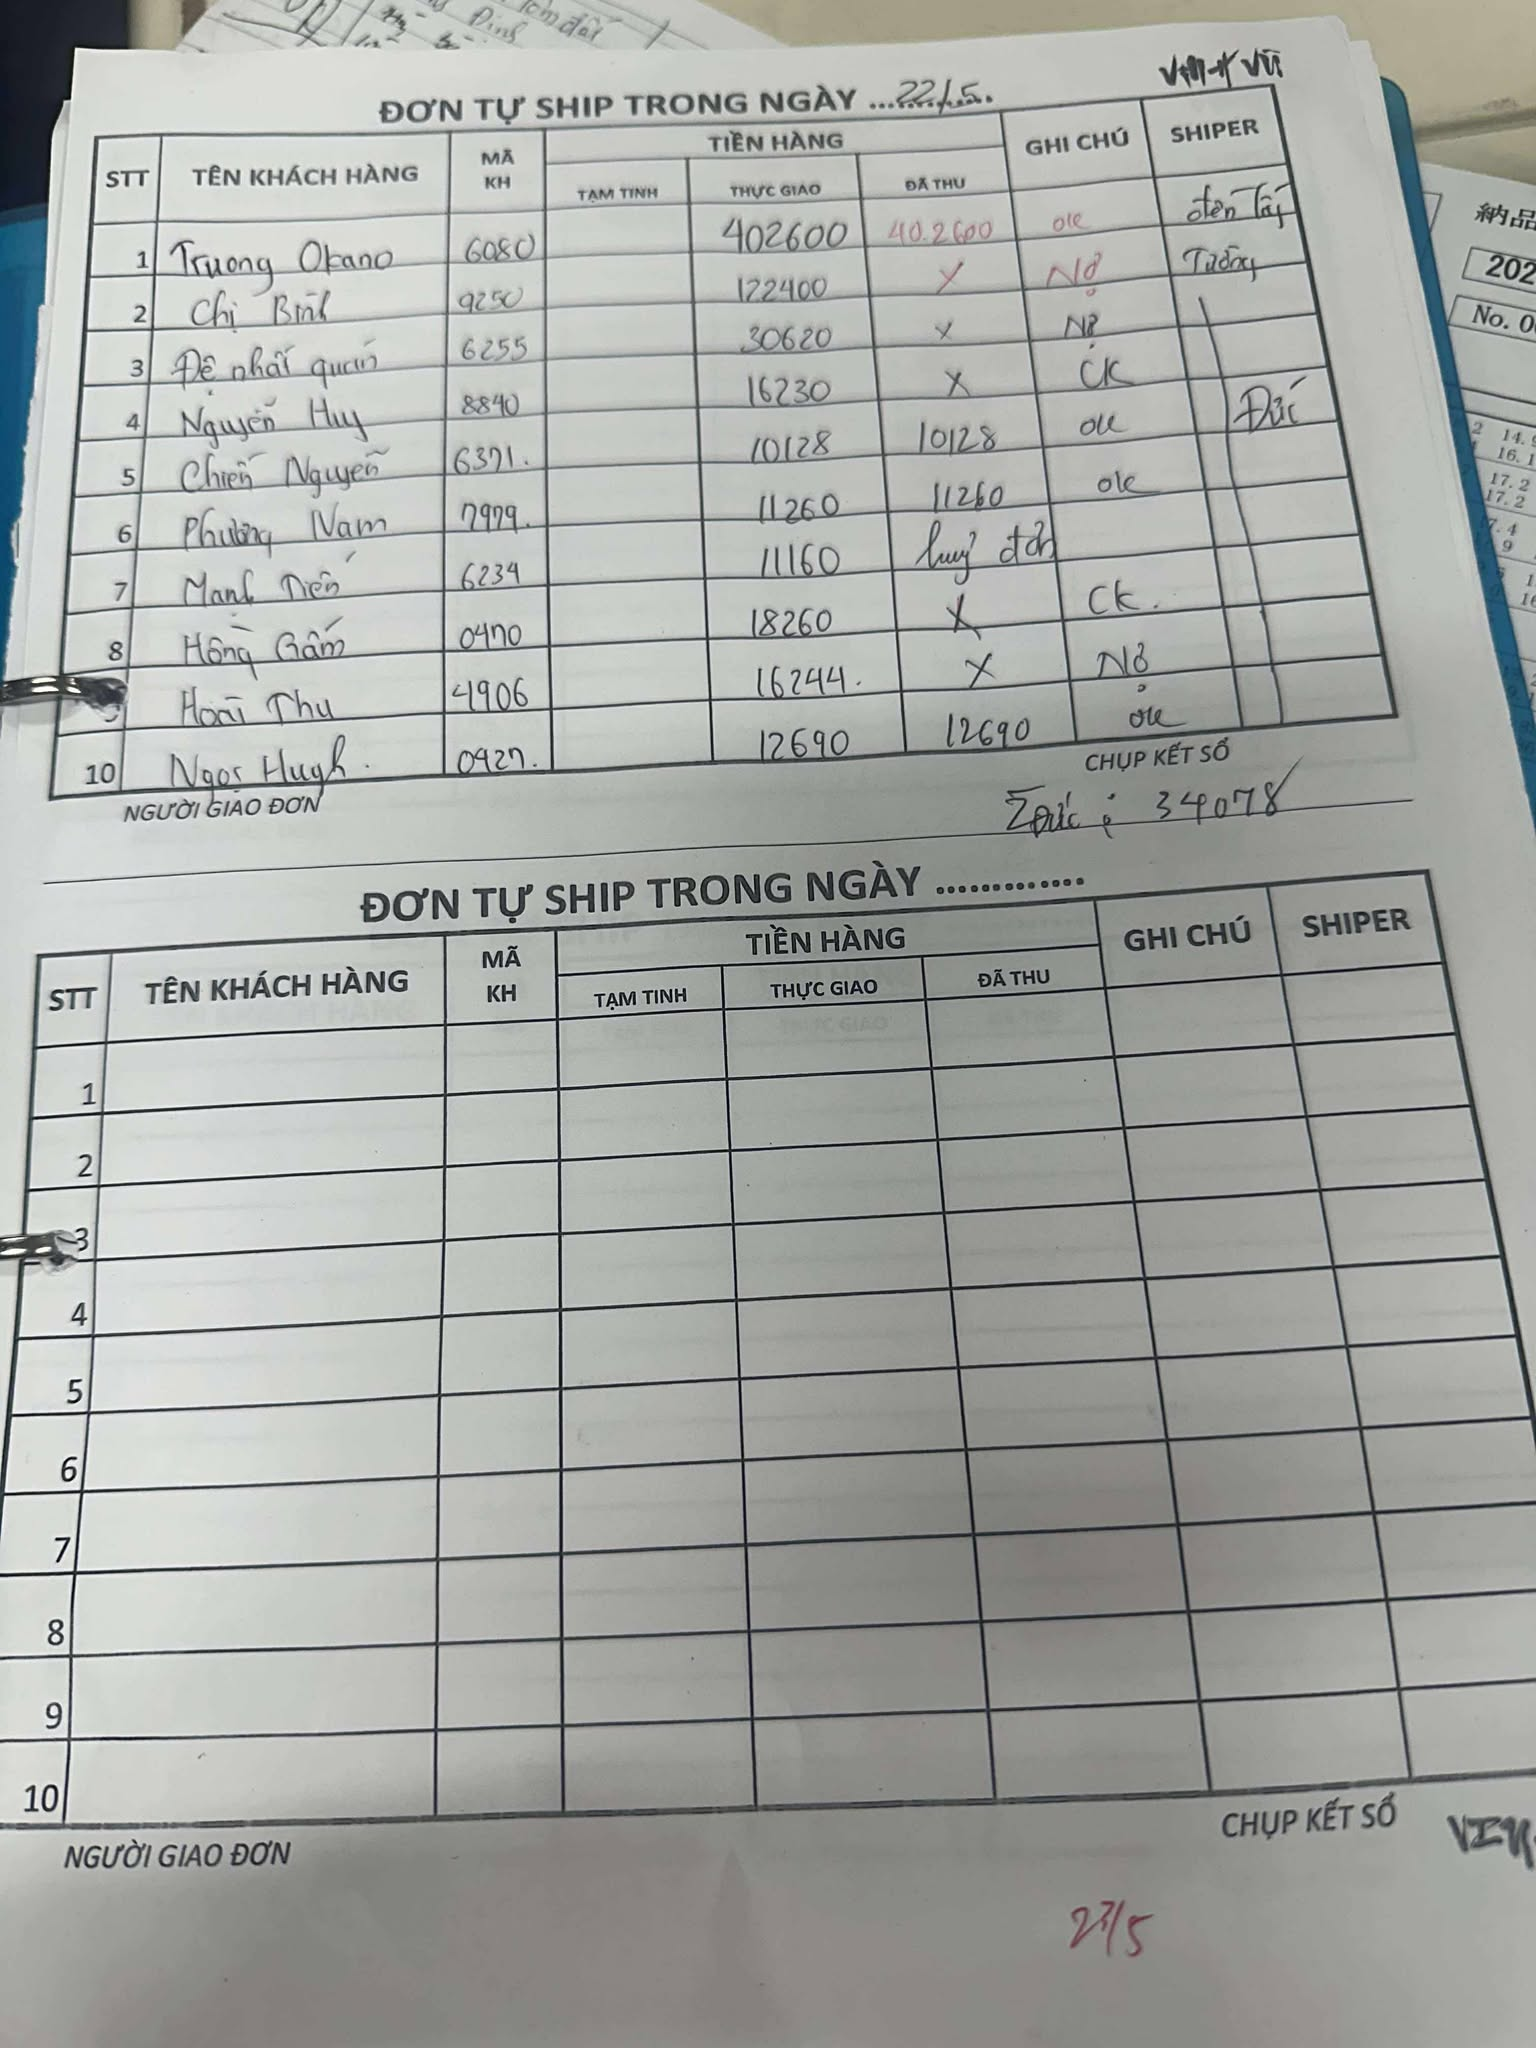 Đinh tôm đất
ĐƠN TỰ SHIP TRONG NGÀY ...22/5.
STT TÊN KHÁCH HÀNG MÃ KH TIỀN HÀNG GHI CHÚ SHIPER
TẠM TINH THỰC GIAO ĐÃ THU
1 Truong Okano 6080 402600 40.2600 ok
2 Chị Bình 9250 122400 X Nợ Tường
3 Đệ nhất quán 6255 30620 X Nợ
4 Nguyễn Huy 8840 16230 X CK
5 Chiến Nguyễn 6371. 10128 10128 ok Đức
6 Phương Nam 7979. 11260 11260 ok
7 Mạnh Tiến 6234 11160 huỷ đơn
8 Hồng Gấm 0470 18260 X CK.
Hoài Thu 4906 16244. X Nợ
10 Ngọc Huynh. 0427. 12690 12690 ok
NGƯỜI GIAO ĐƠN CHỤP KẾT SỔ
Σ Đức : 34078
ĐƠN TỰ SHIP TRONG NGÀY .............
STT TÊN KHÁCH HÀNG MÃ KH TIỀN HÀNG GHI CHÚ SHIPER
TẠM TINH THỰC GIAO ĐÃ THU
1
2
3
4
5
6
7
8
9
10
NGƯỜI GIAO ĐƠN CHỤP KẾT SỔ
23/5
納品
202
No. 0